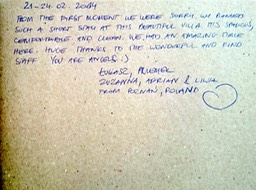 21-24.02.2014
FROM THE FIRST MOMENT WE WERE SORRY, WE PLANNED
SUCH A SHORT STAY AT THIS BEAUTIFUL VILLA. IT'S SPACIOUS,
COMFORTABLE AND CLEAN. WE HAD AN AMAZING TIME
HERE. HUGE THANKS TO THE WONDERFUL AND KIND
STAFF. YOU ARE ANGELS :)
ŁUKASZ,
ZUZANNA, ADRIAN &
FROM POZNAŃ, POLAND